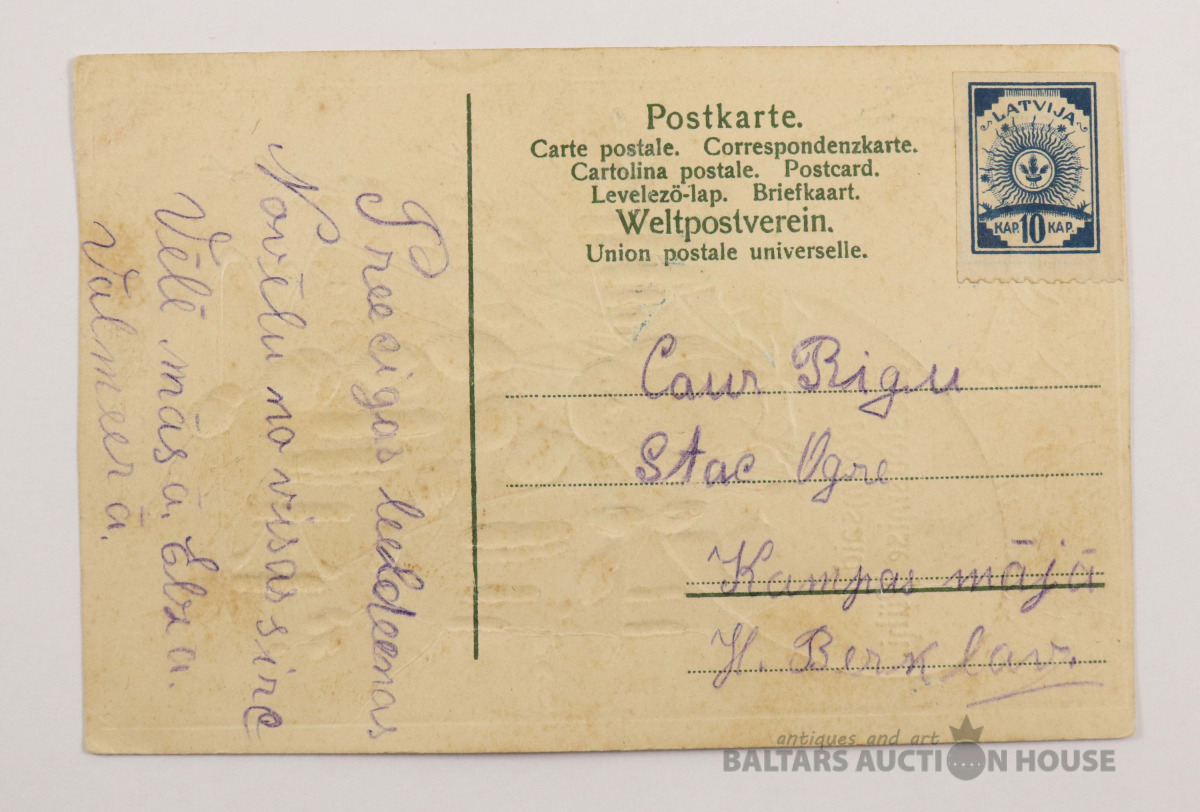 Postkarte.
Carte postale. Correspondenzkarte.
Cartolina postale. Postcard.
Levelező-lap. Briefkaart.
Weltpostverein.
Union postale universelle.
LATVIJA
KAP. 10 KAP.
Preecigas leeldeenas
Novēlu no visas sirc
Vēlē māsa, Elza.
Valmeerā.
Caur Rigu
Stac Ogre
Kampas mājā
H. Berklav.
antiques and art
BALTARS AUCTION HOUSE